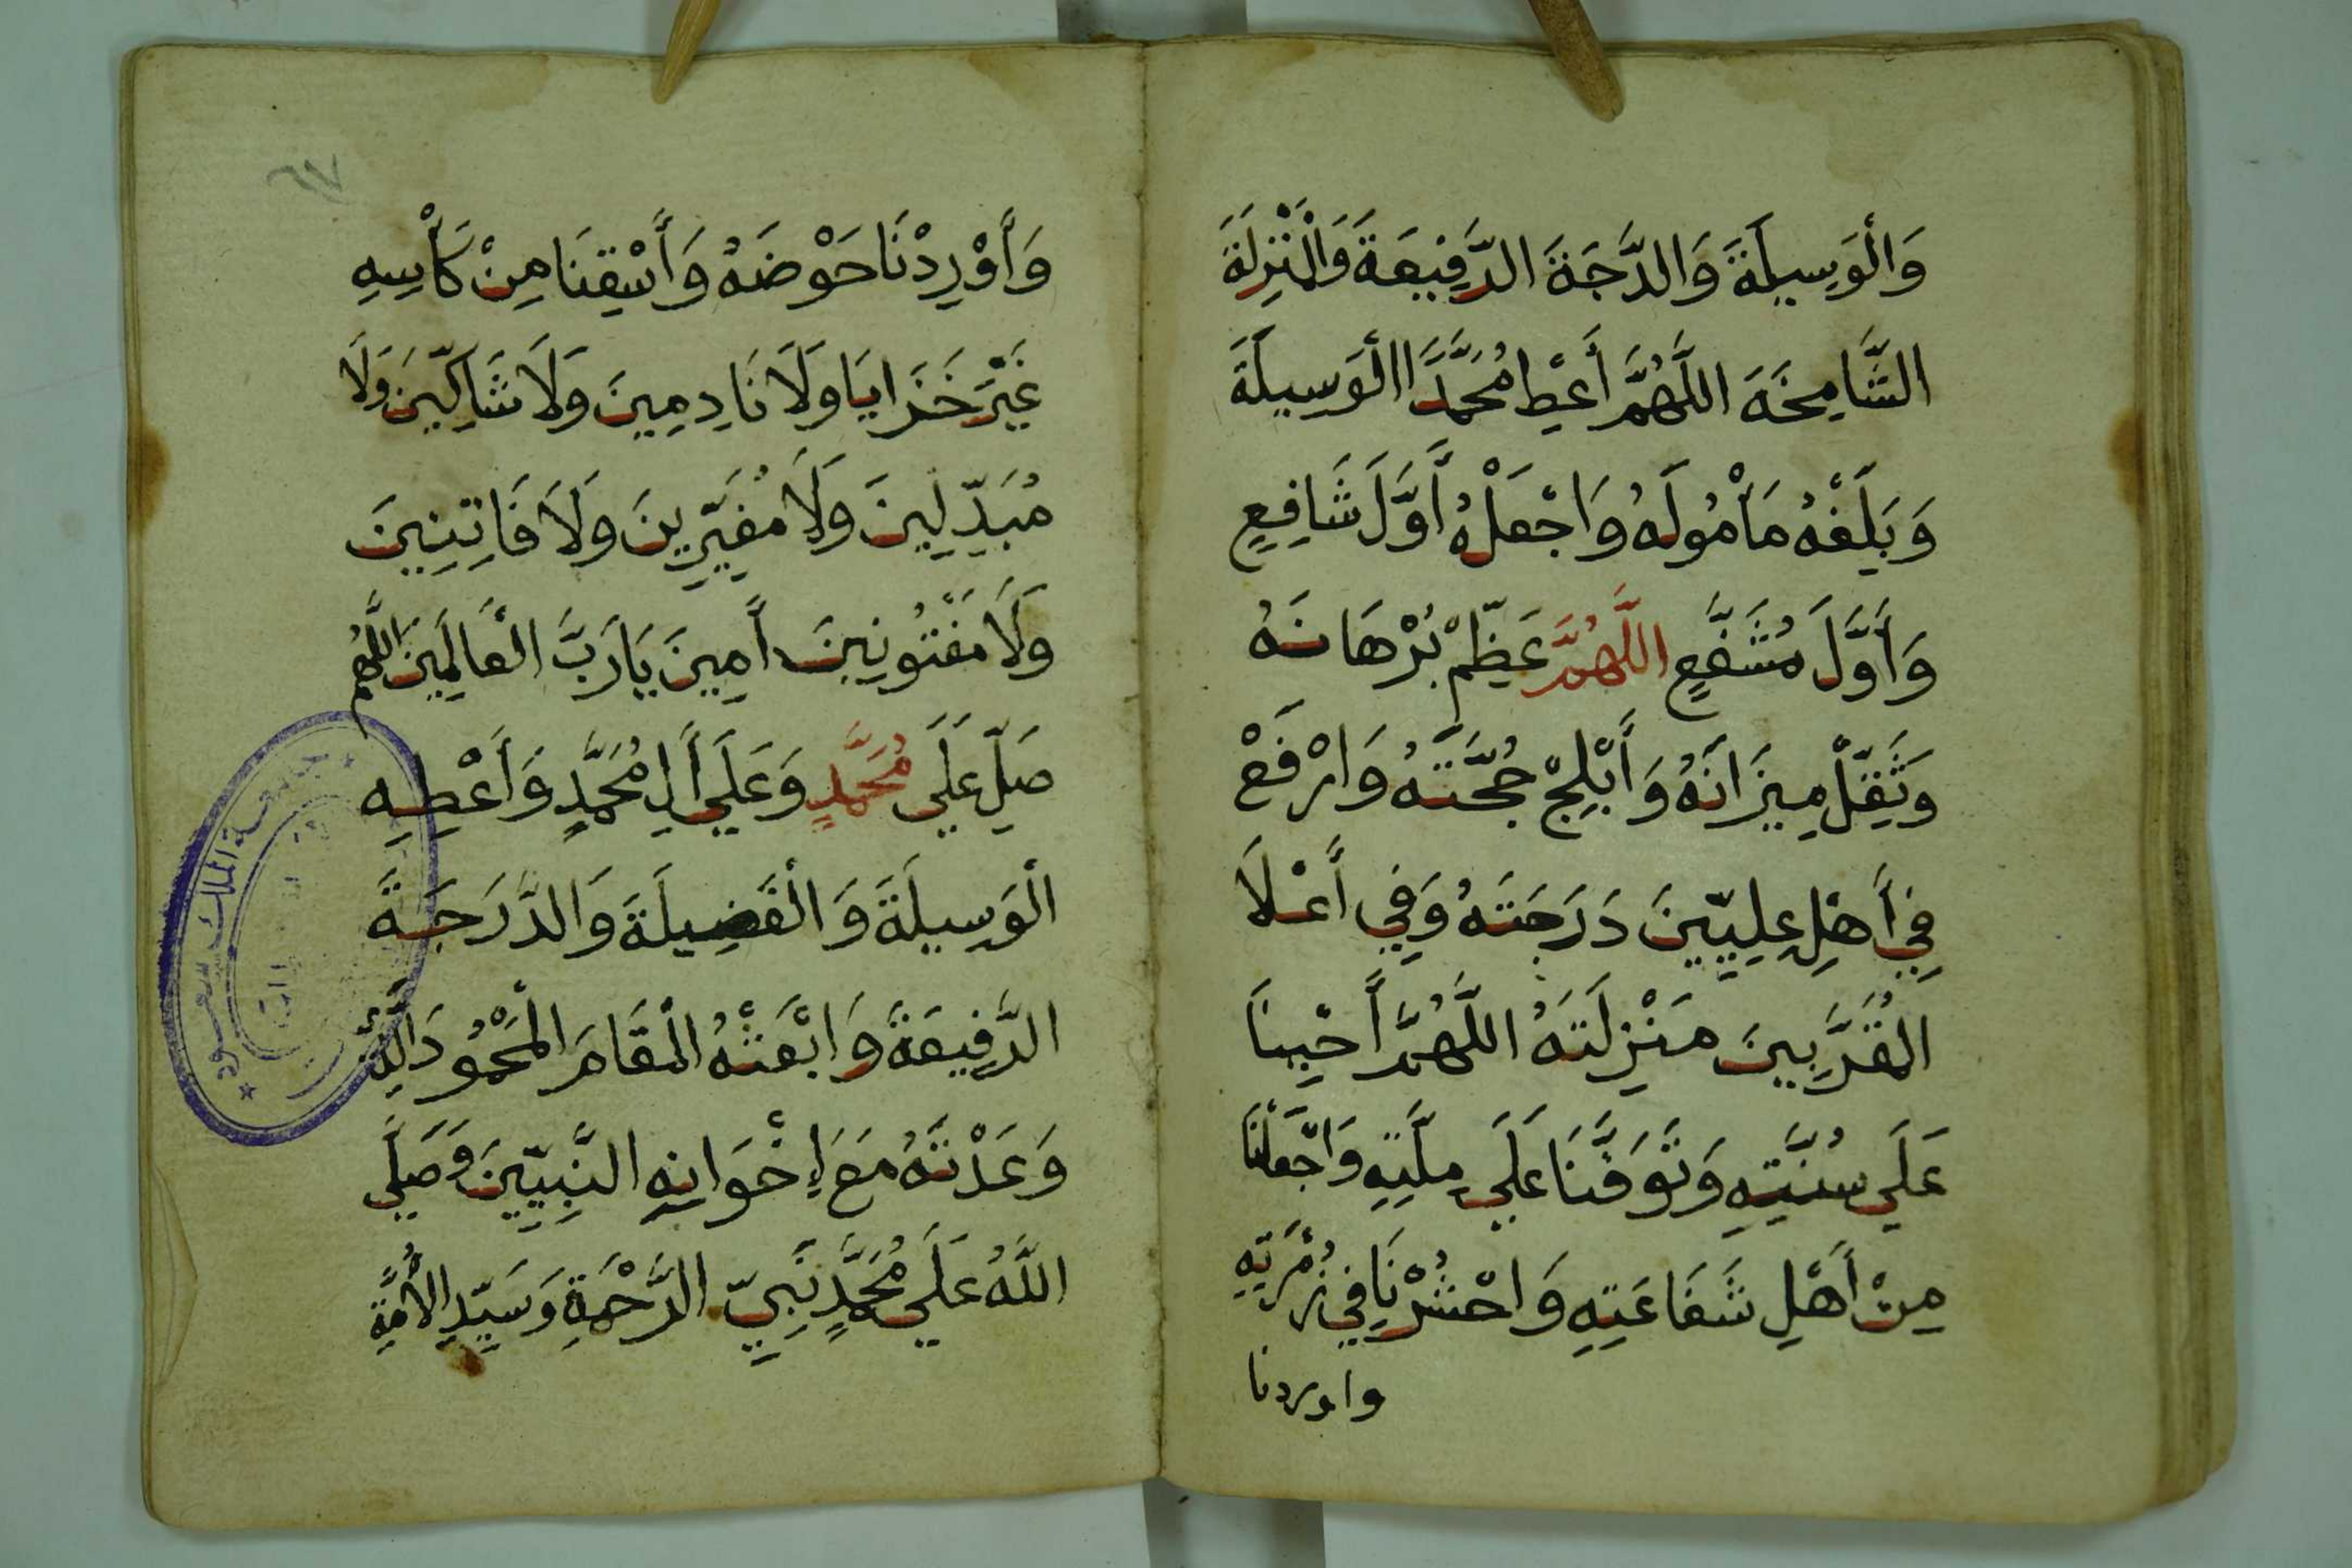 وَالْوَسِيلَةَ وَالدَّرَجَةَ الرَّفِيعَةَ وَالْمَنْزِلَةَ
الشَّامِخَةَ اللَّهُمَّ أَعْطِ مُحَمَّدًا الْوَسِيلَةَ
وَبَلِّغْهُ مَأْمُولَهُ وَاجْعَلْهُ أَوَّلَ شَافِعٍ
وَأَوَّلَ مُشَفَّعٍ اللَّهُمَّ عَظِّمْ بُرْهَانَهُ
وَثَقِّلْ مِيزَانَهُ وَأَبْلِجْ حُجَّتَهُ وَارْفَعْ
فِي أَهْلِ عِلِيِّينَ دَرَجَتَهُ وَفِي أَعْلَا
الْمُقَرَّبِينَ مَنْزِلَتَهُ اللَّهُمَّ أَحْيِنَا
عَلَى سُنَّتِهِ وَتَوَفَّنَا عَلَى مِلَّتِهِ وَاجْعَلْنَا
مِنْ أَهْلِ شَفَاعَتِهِ وَاحْشُرْنَا فِي زُمْرَتِهِ
واوردنا
وَأَوْرِدْنَا حَوْضَهُ وَأَسْقِنَا مِنْ كَأْسِهِ
غَيْرَ خَزَايَا وَلَا نَادِمِينَ وَلَا شَاكِّينَ وَلَا
مُبَدِّلِينَ وَلَا مُغَيِّرِينَ وَلَا فَاتِنِينَ
وَلَا مَفْتُونِينَ أَمِينَ يَا رَبَّ الْعَالَمِينَ اللَّهُم
صَلِّ عَلَى مُحَمَّدٍ وَعَلَى أَلِ مُحَمَّدٍ وَأَعْطِهِ
الْوَسِيلَةَ وَالْفَضِيلَةَ وَالدَّرَجَةَ
الرَّفِيعَةَ وَابْعَثْهُ الْمَقَامَ الْمَحْمُودَ الَّذِي
وَعَدْتَهُ مَعَ إِخْوَانِهِ النَّبِيِّينَ وَصَلَّى
اللَّهُ عَلَى مُحَمَّدٍ نَبِيِّ الرَّحْمَةِ وَسَيِّدِ الْأُمَّةِ
جامعة الملك سعود